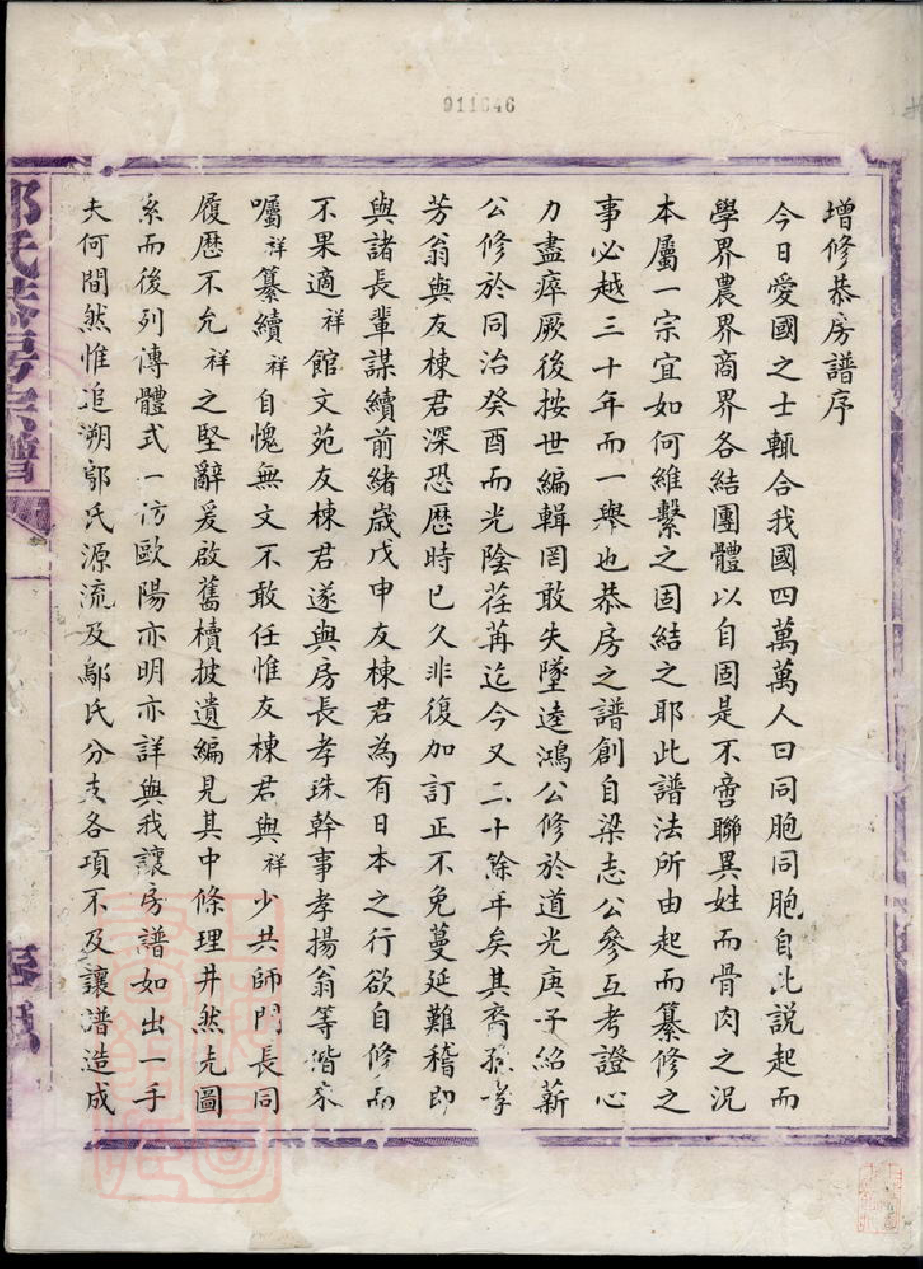 911646
增修恭房譜序
今日愛國之士輒合我國四萬萬人曰同胞同胞自此說起而
學界農界商界各結團體以自固是不啻聯異姓而骨肉之況
本屬一宗宜如何維繫之固結之耶此譜法所由起而纂修之
事必越三十年而一舉也恭房之譜創自梁志公參互考證心
力盡瘁厥後按世編輯罔敢失墜逵鴻公修於道光庚子紹薪
公修於同治癸酉而光陰荏苒迄今又二十餘年矣其裔孫孝
芳翁與友棟君深恐歷時已久非復加訂正不免蔓延難稽即
與諸長輩謀續前緒歲戊申友棟君為有日本之行欲自修而
不果適祥館文苑友棟君遂與房長孝珠幹事孝揚翁等偕來
囑祥纂續祥自愧無文不敢任惟友棟君與祥少共師門長同
履歷不允祥之堅辭爰啟舊櫝披遺編見其中條理井然先圖
系而後列傳體式一仿歐陽亦明亦詳與我讓房譜如出一手
夫何間然惟追溯鄔氏源流及鄔氏分支各項不及讓譜造成
氏恭房宗譜
一